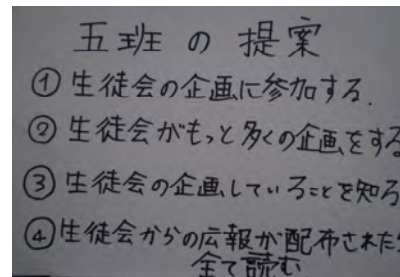 五班の提案
①生徒会の企画に参加する.
②生徒会がもっと多くの企画をする
③生徒会の企画していることを知る
④生徒会からの広報が配布された
全て読む